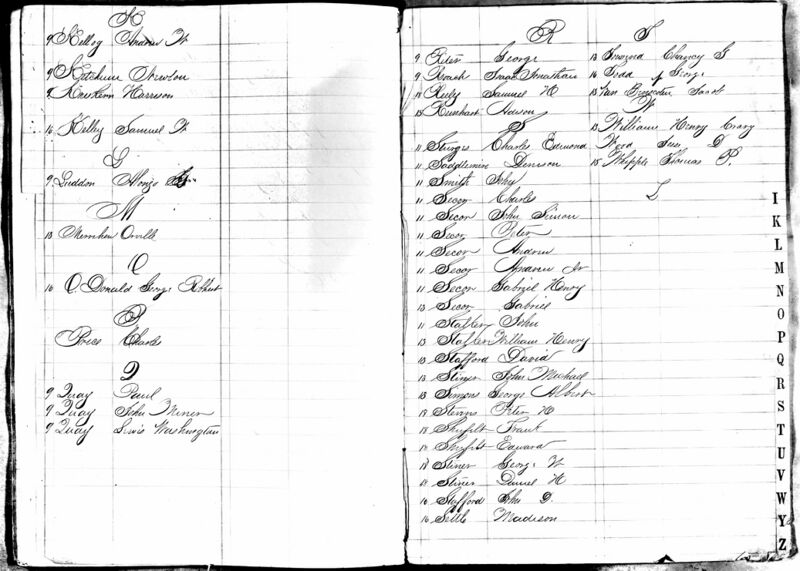 K
9 Kellog Andrew H
9 Ketchum Newton
9 Kniskern Harrison
16 Kelley Samuel H
L
9 Luddon Alonzo
M
13 Merrihew Orville
O
16 O. Donald George Robert
P
Price Charles
Q
9 Quay Paul
9 Quay John Miner
9 Quay Lewis Washington
R
9 Riter George
9 Roach Isaac Jonathan
Ruly Samuel H
15 Runhart Hewson
S
11 Sturges Charles Edmond
11 Saddlemire Denison
11 Smith John
11 Secor Charles
11 Secor John Simon
11 Secor Peter
11 Secor Andrew
11 Secor Andrew Jr
11 Secor Gabriel Henry
13 Secor Gabriel
11 Stafler John
13 Stafler William Henry
13 Stafford David
13 Stiner John Michael
13 Simons George Albert
18 Sterns Peter H
18 Frank
18 Edward
18 Stiner George W
18 Stiner Daniel H
16 Stafford John D.
16 Settle Madison
T
13 Chancy G
16 Todd George
13 Van Jacob
W
13 William Henry Crary
Word D
15 Whipple Thomas P.
I
K
L
M
N
O
P
Q
R
S
T
U
V
W
Y
Z